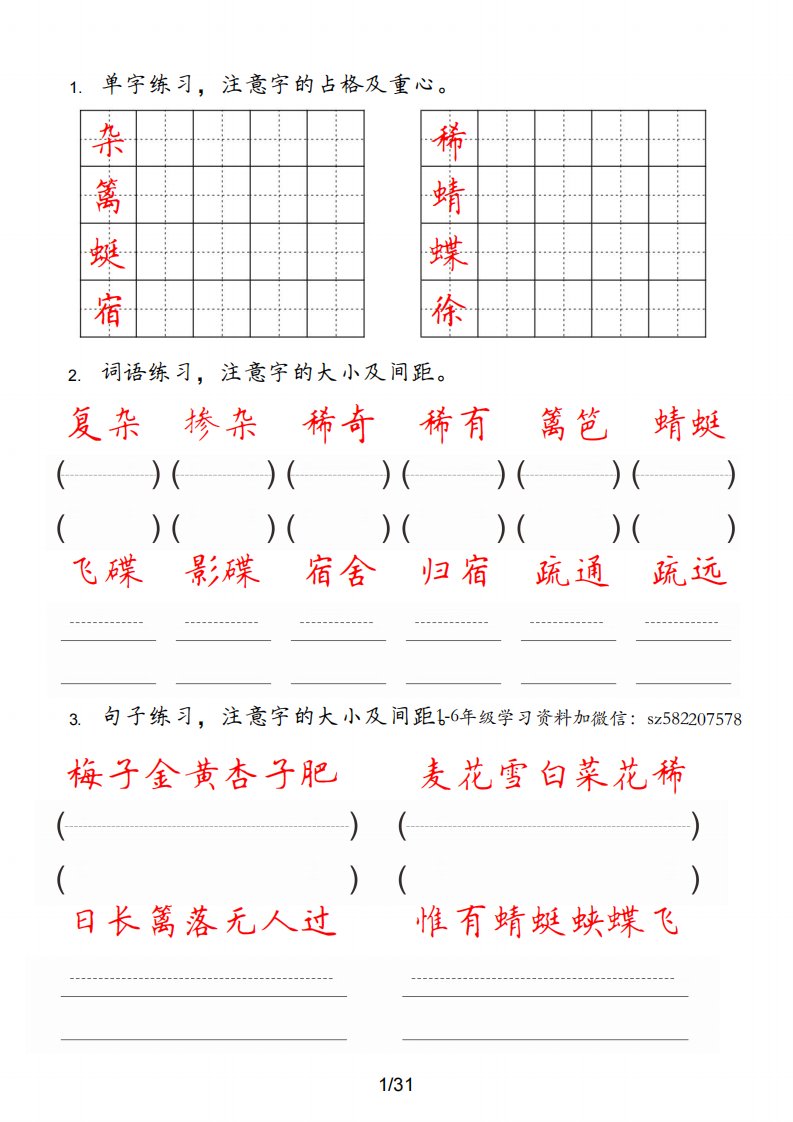 1. 单字练习，注意字的占格及重心。
杂 稀
篱 蜻
蜓 蝶
宿 徐
2. 词语练习，注意字的大小及间距。
复杂 掺杂 稀奇 稀有 篱笆 蜻蜓
( ) ( ) ( ) ( ) ( ) ( )
( ) ( ) ( ) ( ) ( ) ( )
飞碟 影碟 宿舍 归宿 疏通 疏远
3. 句子练习，注意字的大小及间距。1-6年级学习资料加微信：sz582207578
梅子金黄杏子肥 麦花雪白菜花稀
( ) ( )
( ) ( )
日长篱落无人过 惟有蜻蜓蛱蝶飞
1/31